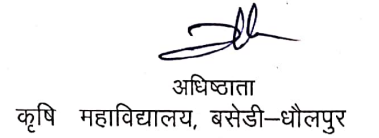 अधिष्ठाता
कृषि महाविद्यालय, बसेडी–धौलपुर